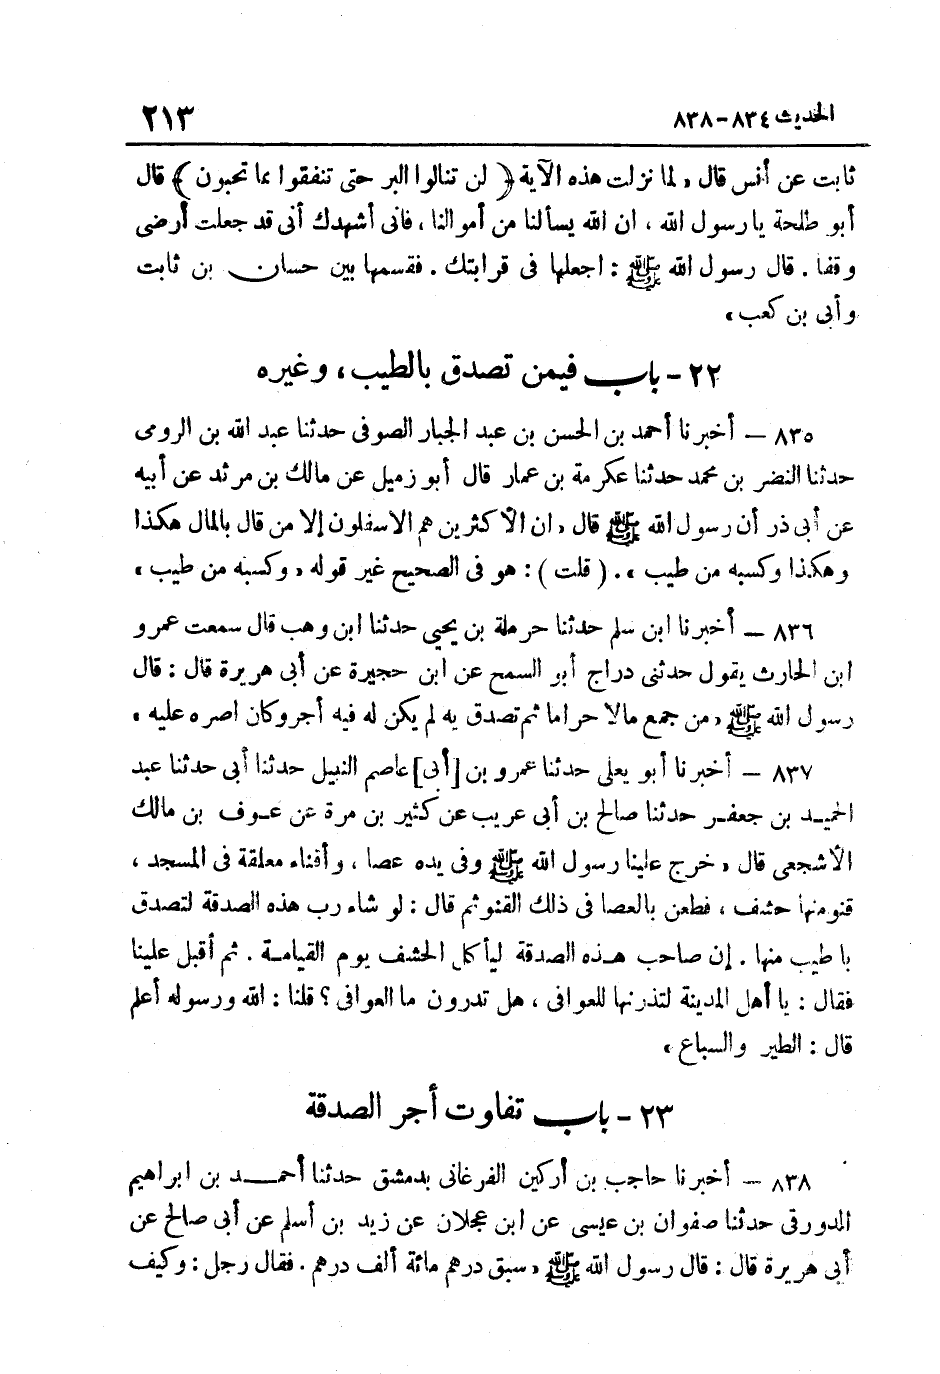 الحديث ٨٣٤ – ٨٣٨ ٢١٣
ثابت عن أنس قال « لما نزلت هذه الآية ﴿ لن تنالوا البر حتى تنفقوا مما تحبون ﴾ قال
أبو طلحة يا رسول الله ، ان الله يسألنا من أموالنا ، فانى أشهدك أنى قد جعلت أرضى
وقفا . قال رسول الله ﷺ : اجعلها فى قرابتك . فقسمها بين حسان بن ثابت
وأبى بن كعب »
٢٢ – باب فيمن تصدق بالطيب ، وغيره
٨٣٥ – أخبرنا أحمد بن الحسن بن عبد الجبار الصوفى حدثنا عبد الله بن الرومى
حدثنا النضر بن محمد حدثنا عكرمة بن عمار قال أبو زميل عن مالك بن مرثد عن أبيه
عن أبى ذر أن رسول الله ﷺ قال « ان الأكثرين هم الاسفلون إلا من قال بالمال هكذا
وهكذا وكسبه من طيب » . ( قلت ) : هو فى الصحيح غير قوله « وكسبه من طيب »
٨٣٦ – أخبرنا ابن سلم حدثنا حرملة بن يحيى حدثنا ابن وهب قال سمعت عمرو
ابن الحارث يقول حدثنى دراج أبو السمح عن ابن حجيرة عن أبى هريرة قال : قال
رسول الله ﷺ « من جمع مالا حراما ثم تصدق به لم يكن له فيه أجر وكان اصره عليه »
٨٣٧ – أخبرنا أبو يعلى حدثنا عمرو بن [أبى] عاصم النبيل حدثنا أبى حدثنا عبد
الحميد بن جعفر حدثنا صالح بن أبى عريب عن كثير بن مرة عن عوف بن مالك
الأشجعى قال « خرج علينا رسول الله ﷺ وفى يده عصا ، وأقناء معلقة فى المسجد ،
قنو منها حشف ، فطعن بالعصا فى ذلك القنو ثم قال : لو شاء رب هذه الصدقة لتصدق
باطيب منها . إن صاحب هذه الصدقة ليأكل الحشف يوم القيامة . ثم أقبل علينا
فقال : يا أهل المدينة لتذرنها للعوافى ، هل تدرون ما العوافى ؟ قلنا : الله ورسوله أعلم
قال : الطير والسباع »
٢٣ – باب تفاوت أجر الصدقة
٨٣٨ – أخبرنا حاجب بن أركين الفرغانى بدمشق حدثنا أحمد بن ابراهيم
الدورقى حدثنا صفوان بن عيسى عن ابن عجلان عن زيد بن أسلم عن أبى صالح عن
أبى هريرة قال : قال رسول الله ﷺ « سبق درهم مائة ألف درهم . فقال رجل : وكيف